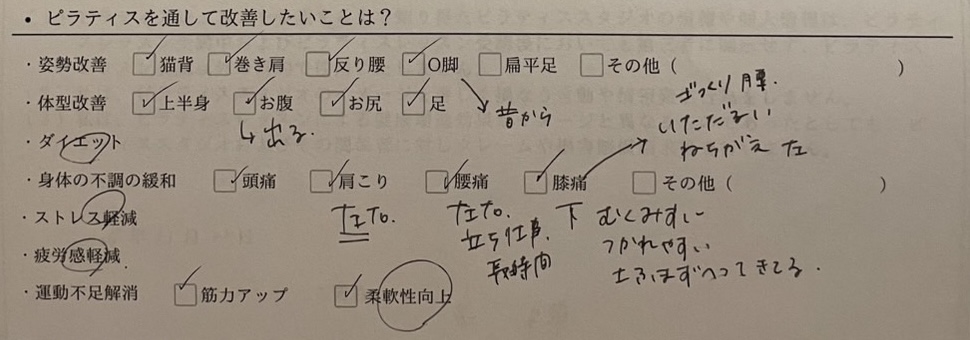 • ピラティスを通して改善したいことは？
・姿勢改善 ☑猫背 ☑巻き肩 ☑反り腰 ☑O脚 □扁平足 □その他（ ）
ぎっくり腰.
・体型改善 ☑上半身 ☑お腹 ☑お尻 ☑足
↳出る. 昔から
いただるい
・ダイエット
ねちがえ 左
・身体の不調の緩和 ☑頭痛 ☑肩こり ☑腰痛 ☑膝痛 □その他（ ）
・ストレス軽減
左右. 左右. 下 むくみすい
立ち仕事.
つかれやすい
・疲労感軽減
長時間
きてる.
・運動不足解消 ☑筋力アップ ☑柔軟性向上